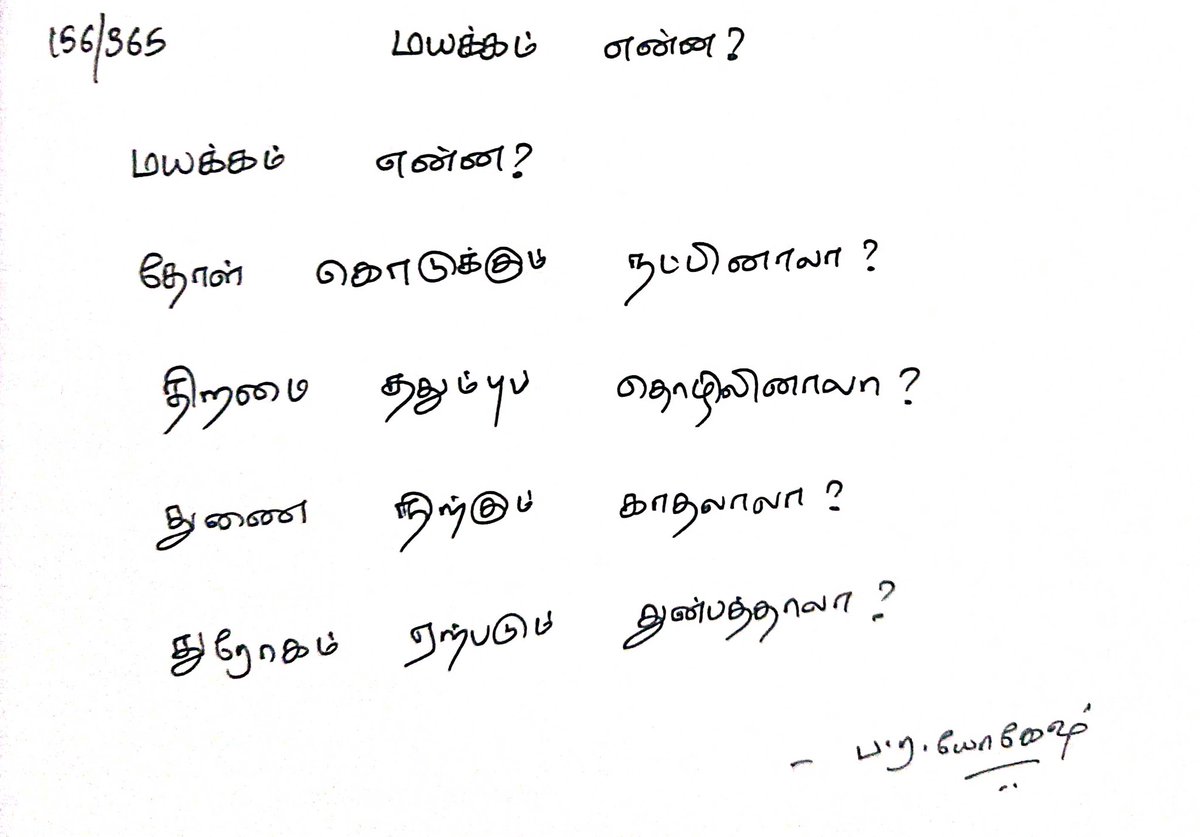 156/365 மயக்கம் என்ன?
மயக்கம் என்ன?
தோள் கொடுக்கும் நட்பினாலா?
திறமை ததும்புப தொழிலினாலா?
துணை நிற்கும் காதலாலா?
துரோகம் ஏற்படும் துன்பத்தாலா?
- ப.ர.யோகேஷ்